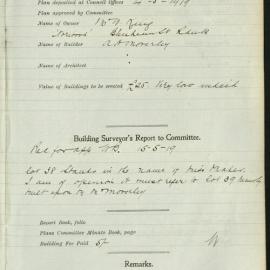 Plan deposited at Council Offices 4-3-1919
Plan approved by Committee.
Name of Owner Mr W King
"Norwood" Blenheim St Rand
Name of Builder A A Moverley
Name of Architect
Value of Buildings to be erected £25. Very low
Building Surveyor's Report to Committee.
Rec for app 15-5-19
Lot 38 Stands in the name of Miss
I am of opinion it must refer to Lot 39
built upon by Mr Moverley
Report Book, folio
Plans Committee Minute Book, page
Building Fee Paid 5/-
Remarks.